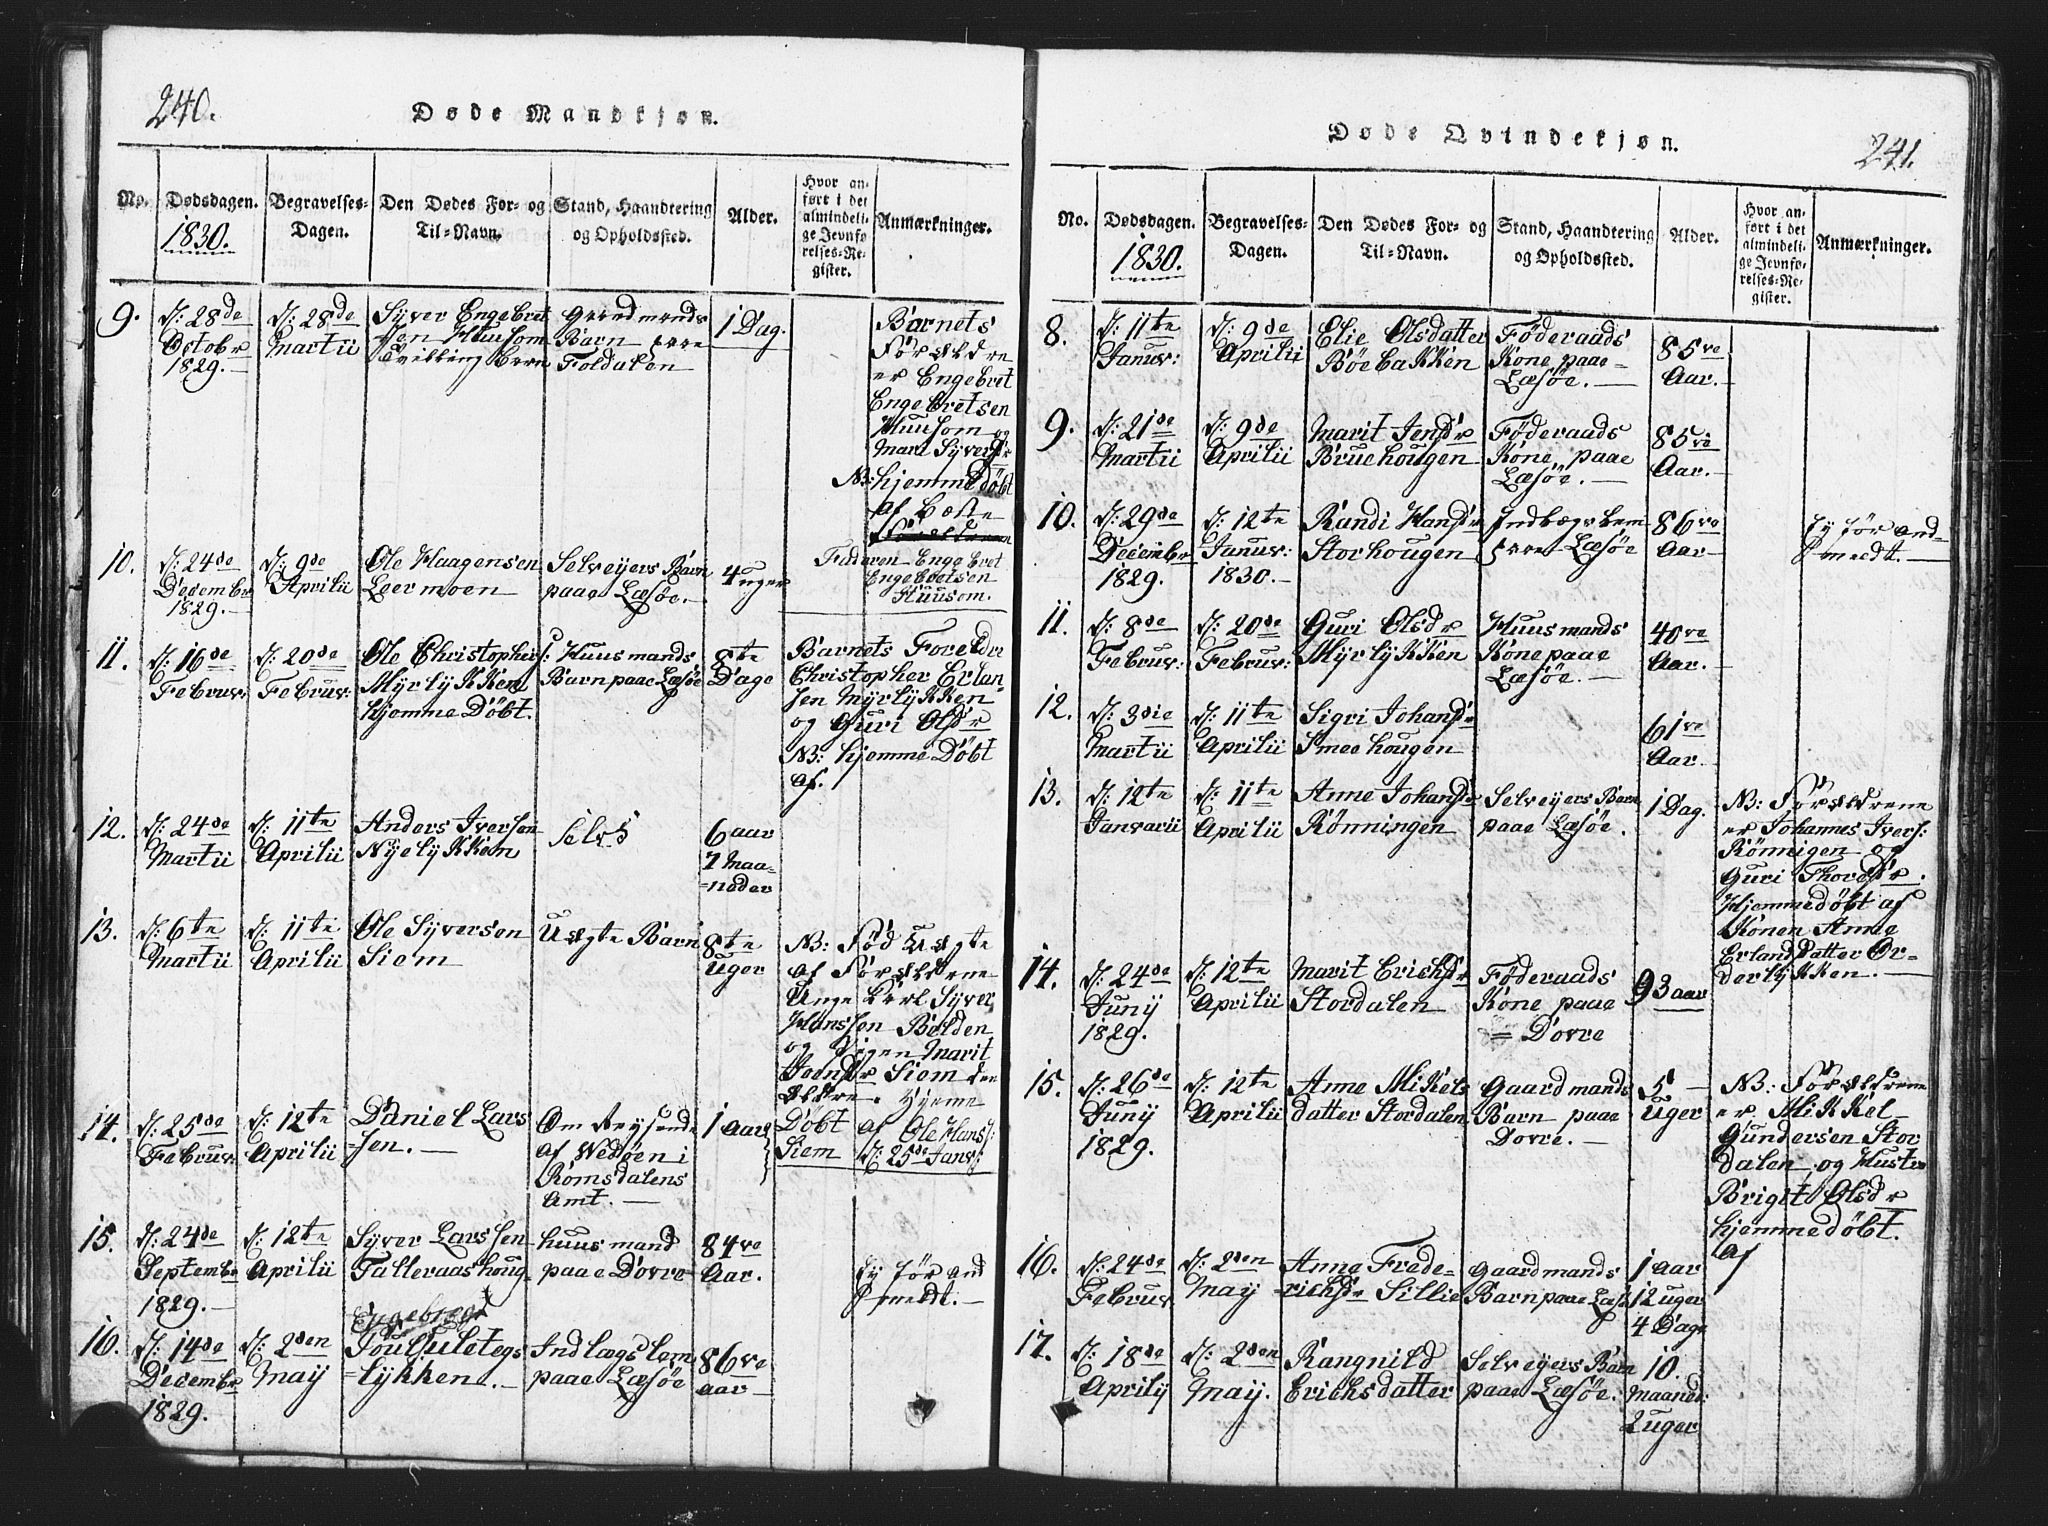 240.
Døde Mandkjøn.
No.
Dødsdagen.
1830.
Begravelses-
Dagen.
Den Dødes For- og
Til-Navn.
Stand, Haandtering
og Opholdssted.
Alder.
Hvor an-
ført i det
almindeli-
ge Jevnfø-
relses-Re-
gister.
Anmærkninger.
9.
d: 28de
Octobr
1829.
d: 28de
Martii
Syver Engebret
sen Huusom
Tvilling barn
Gaardmands
Barn
Foldalen
1 Dag.
Barnets
Forældre
er Engebret
Engebretsen
Huusom og
Mari Syversdr
NB: hjemmedöbt
af
Faderen Engebret
Engebretsen
Huusom.
10.
d: 24de
Decembr
1829.
d: 9de
Aprilii
Ole Haagensen
Leermoen
Selveyers Barn
paae Læsöe.
4 uger
11.
d: 16de
Februv:
d: 20de
Februv:
Ole Christophers:
Myrlykken
Hjemme Döbt.
Huusmands
Barn paae Læsöe
8te
Dage
Barnets Foreldre
Christopher Erlan-
sen Myrlykken
og Guri Olsdr
NB: hjemme Döbt
af.
12.
d: 24de
Martii
d: 11te
Aprilii
Anders Iversen
Nyelykken
Selvs
6 aar
7 Maa-
=neder
13.
d: 6te
Martii
d: 11te
Aprilii
Ole Syversen
Siem
Uægte Barn
8te
Uger
NB: Föd Uægte
af Forældrene
Unge Karl Syver
Hanssen Bolden
og Pigen Marit
Joensdr Siem den
ældre. Hjeme
Döbt af Ole Hans:
Siem d: 25de Janv:
14.
d: 25de
Februv:
d: 12te
Aprilii
Daniel Lars
=sen.
Om Reysende
af Wedöen i
Romsdalens
Amt.
1 aar
15.
d: 24de
Septembr
1829.
d: 12te
Aprilii
Syver Larssen
Talleraashoug
huusmand
paae Dovre
84ve
Aar.
Ey för and
meldt.
16.
d: 14de
Decembr
1829.
d: 2den
May
Engebregt
=lykken.
Indlægslem
paae Læsöe
86ve
aar
241.
Døde Qvindekjøn.
No.
Dødsdagen.
1830.
Begravelses-
Dagen.
Den Dødes For- og
Til-Navn.
Stand, Haandtering
og Opholdssted.
Alder.
Hvor an-
ført i det
almindeli-
ge Jevnfø-
relses-Re-
gister.
Anmærkninger.
8.
d: 11te
Januv:
d: 9de
Aprilii
Elie Olsdatter
Böebakken
Föderaads
Kone paae
Læsöe.
85ve
Aar.
9.
d: 21de
Martii
d: 9de
Aprilii
Marit Jensdr
Bruehougen
Föderaads
Kone paae
Læsöe.
85ve
Aar.
10.
d: 29de
Decembr
1829.
d: 12te
Januv:
1830.
Randi Hansdr
Storhougen
Indlægslem
Læsöe
86ve
Aar
Ey för and
meldt.
11.
d: 8de
Februv:
d: 20de
Februv:
Guri Olsdr
Myrlykken
Huusmands
Kone paae
Læsöe.
40ve
Aar.
12.
d: 3die
Martii
d: 11te
Aprilii
Sigri Johansdr
Smeehougen
61ve
Aar.
13.
d: 12te
Janvarii
d: 11te
Aprilii
Anne Johansdr
Rönningen
Selveyers Barn
paae Læsöe.
1 Dag.
NB: Forældrene
er Johannes Ivers:
Rönnigen og
Guri Thordsdr.
Hjemmedöbt af
Konen Anne
Erlandsdatter Or-
derlykken.
14.
d: 24de
Juny
1829.
d: 12te
Aprilii
Marit Erichsdr
Stordalen
Föderaads
Kone paae
= Dovre
93 aar
15.
d: 26de
Juny
1829.
d: 12te
Aprilii
Anne Mikels
datter Stordalen
Gaardmands
Barn paae
Dovre.
5
Uger
NB: Forældrene
er Mikkel
Gundersen Stor
dalen og Hustr
Brigit Olsdr
hjemmedöbt.
af
16.
d: 24de
Februv
d: 2den
May
Anne Frede=
=richsdr Sillie
Gaardmands
Barn paae Læs
1 aar
12 uger
4 Dage
17.
d: 18de
Aprily
d: 2den
May.
Rangnild
Erichsdatter
Selveyers Barn
paae Læsöe.
10.
Maaned:
2 uger